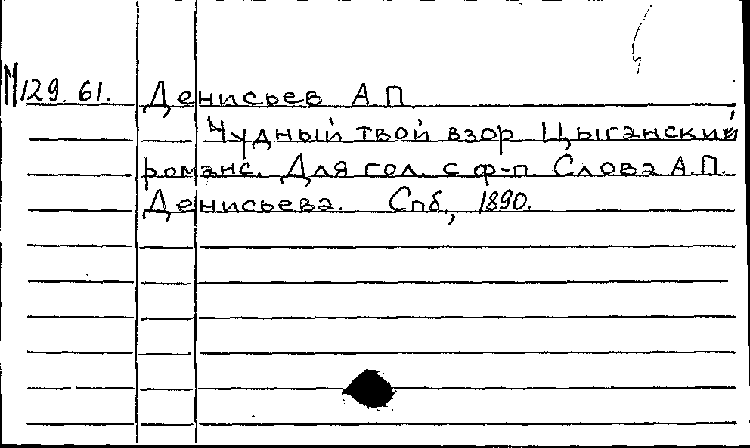 М129.61. Денисьев А.П
Чудный твой взор Цыганский
романс. Для гол. с ф-п. Слова А.П.
Денисьева. Спб., 1890.